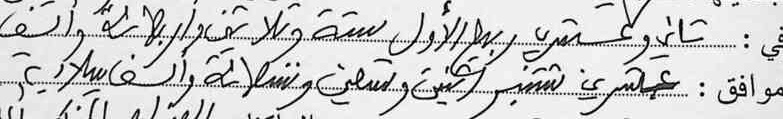 في : ثاني وعشرين ربيع الأول سنة وأربعمائة وألف
موافق : عشرين شتنبر اثنين وتسعين وتسعمائة وألف ميلادية